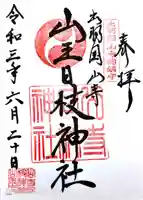 奉拝
出羽国山寺
山王日枝神社
令和三年六月二十日